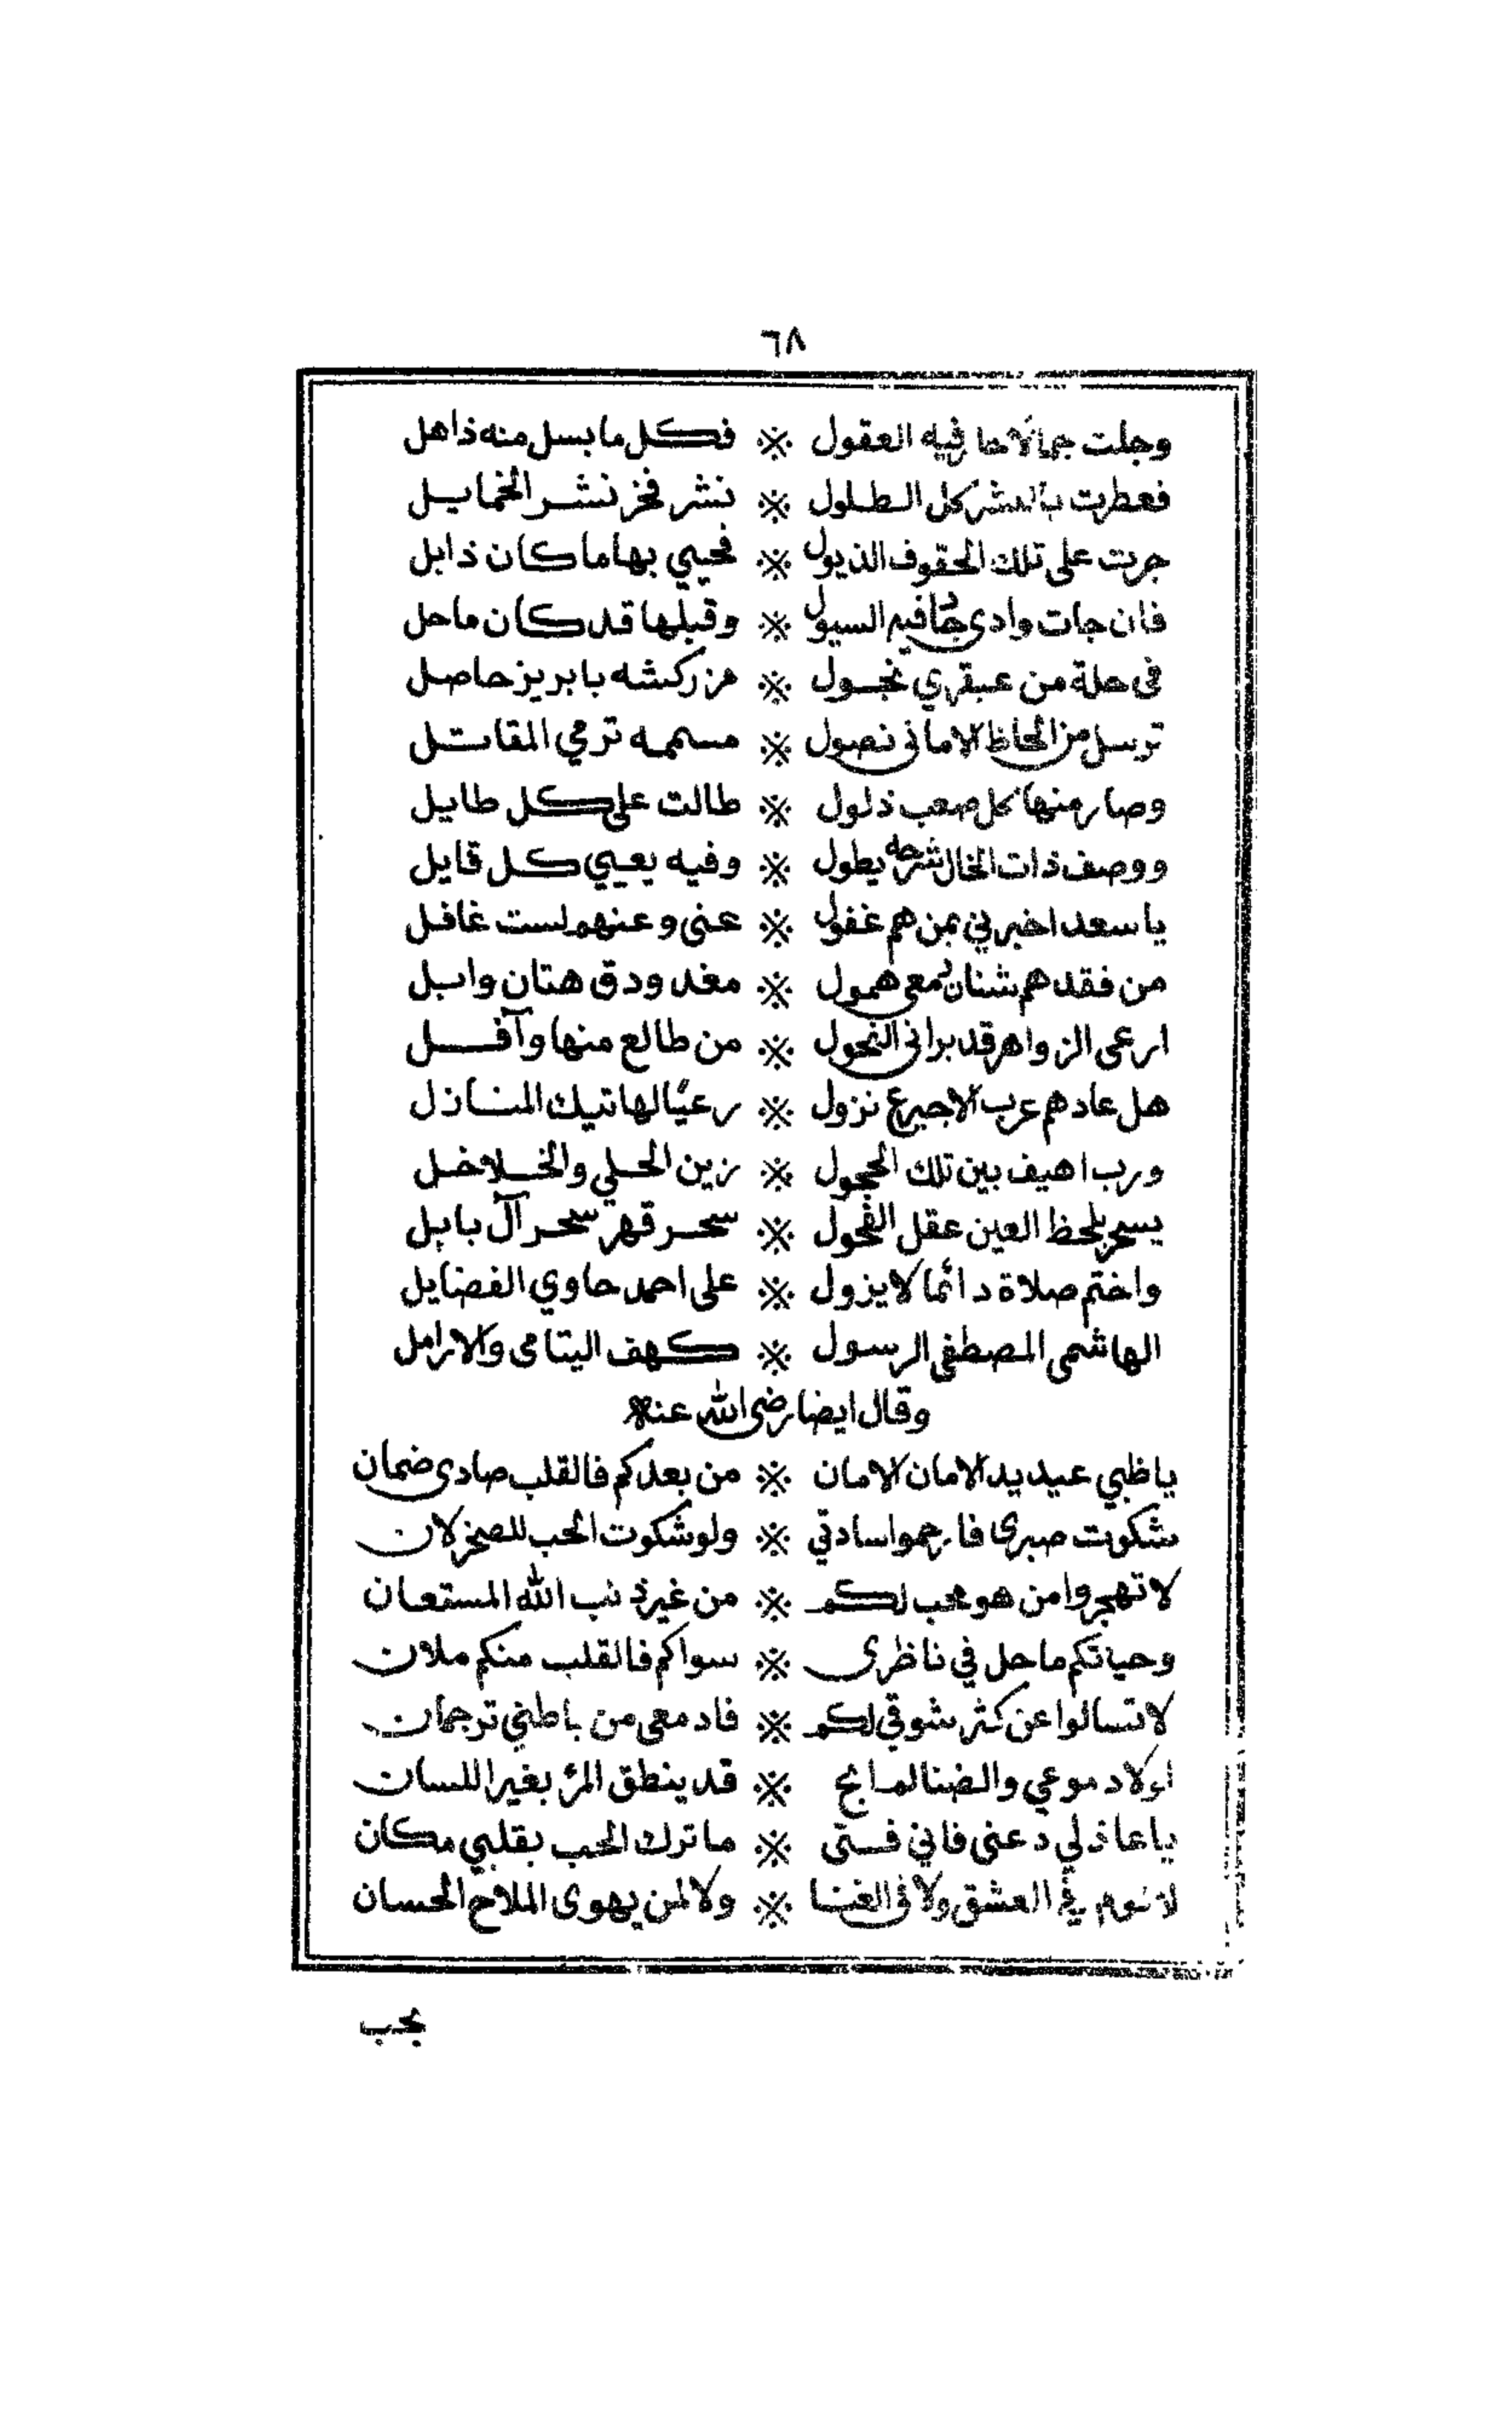 ٦٨
وجلت جمالا حار فيه العقول ※ فكل ما بسل منه ذاهل
فعطرت بالنشر كل الطلول ※ نشر فخر نشر الخمايل
جرت على تلك الحقوف الذيول ※ فحيي بها ماكان ذابل
فان جات وادي جا فيه السيول ※ وقبلها قد كان ماحل
في حلة من عبقري نجول ※ مزركشه بابريز حاصل
ترسل من الحاظ الاماني نصول ※ مسممه ترمي المقاتل
وصار منها كل صعب ذلول ※ طالت على كل طايل
ووصف ذات الخال شرحه يطول ※ وفيه يعيي كل قايل
يا سعد اخبرني بمن هم غفول ※ عني وعنهم لست غافل
من فقدهم شنان دمعي همول ※ مغدودق هتان وابل
ارعى الزواهر قد براني النحول ※ من طالع منها وآفل
هل عادهم عرب الاجيرع نزول ※ رعيًا لهاتيك المنازل
ورب اهيف بين تلك الحجول ※ زين الحلي والخلاخل
يسحر بلحظ العين عقل الفحول ※ سحر قهر سحر آل بابل
واختم صلاة دائما لا يزول ※ على احمد حاوي الفضايل
الهاشمي المصطفى الرسول ※ كهف اليتامى والارامل
وقال ايضا رضي الله عنه
يا ظبي عيديد الامان الامان ※ من بعدكم فالقلب صادى ضمان
شكوت صبرى فارحموا سادتي ※ ولو شكوت الحب للصخر لان
لا تهجروا من هو محب لكم ※ من غير ذنب الله المستعان
وحياتكم ما حل في ناظرى ※ سواكم فالقلب منكم ملان
لا تسالوا عن كثر شوقي لكم ※ فادمعى من باطني ترجمان
لولا دموعي والضنا لم ابح ※ قد ينطق المرء بغير اللسان
يا عاذلي دعني فاني فتى ※ ما ترك الحب بقلبي مكان
لا نوم في العشق ولا في الغنا ※ ولا لمن يهوى الملاح الحسان
بحب